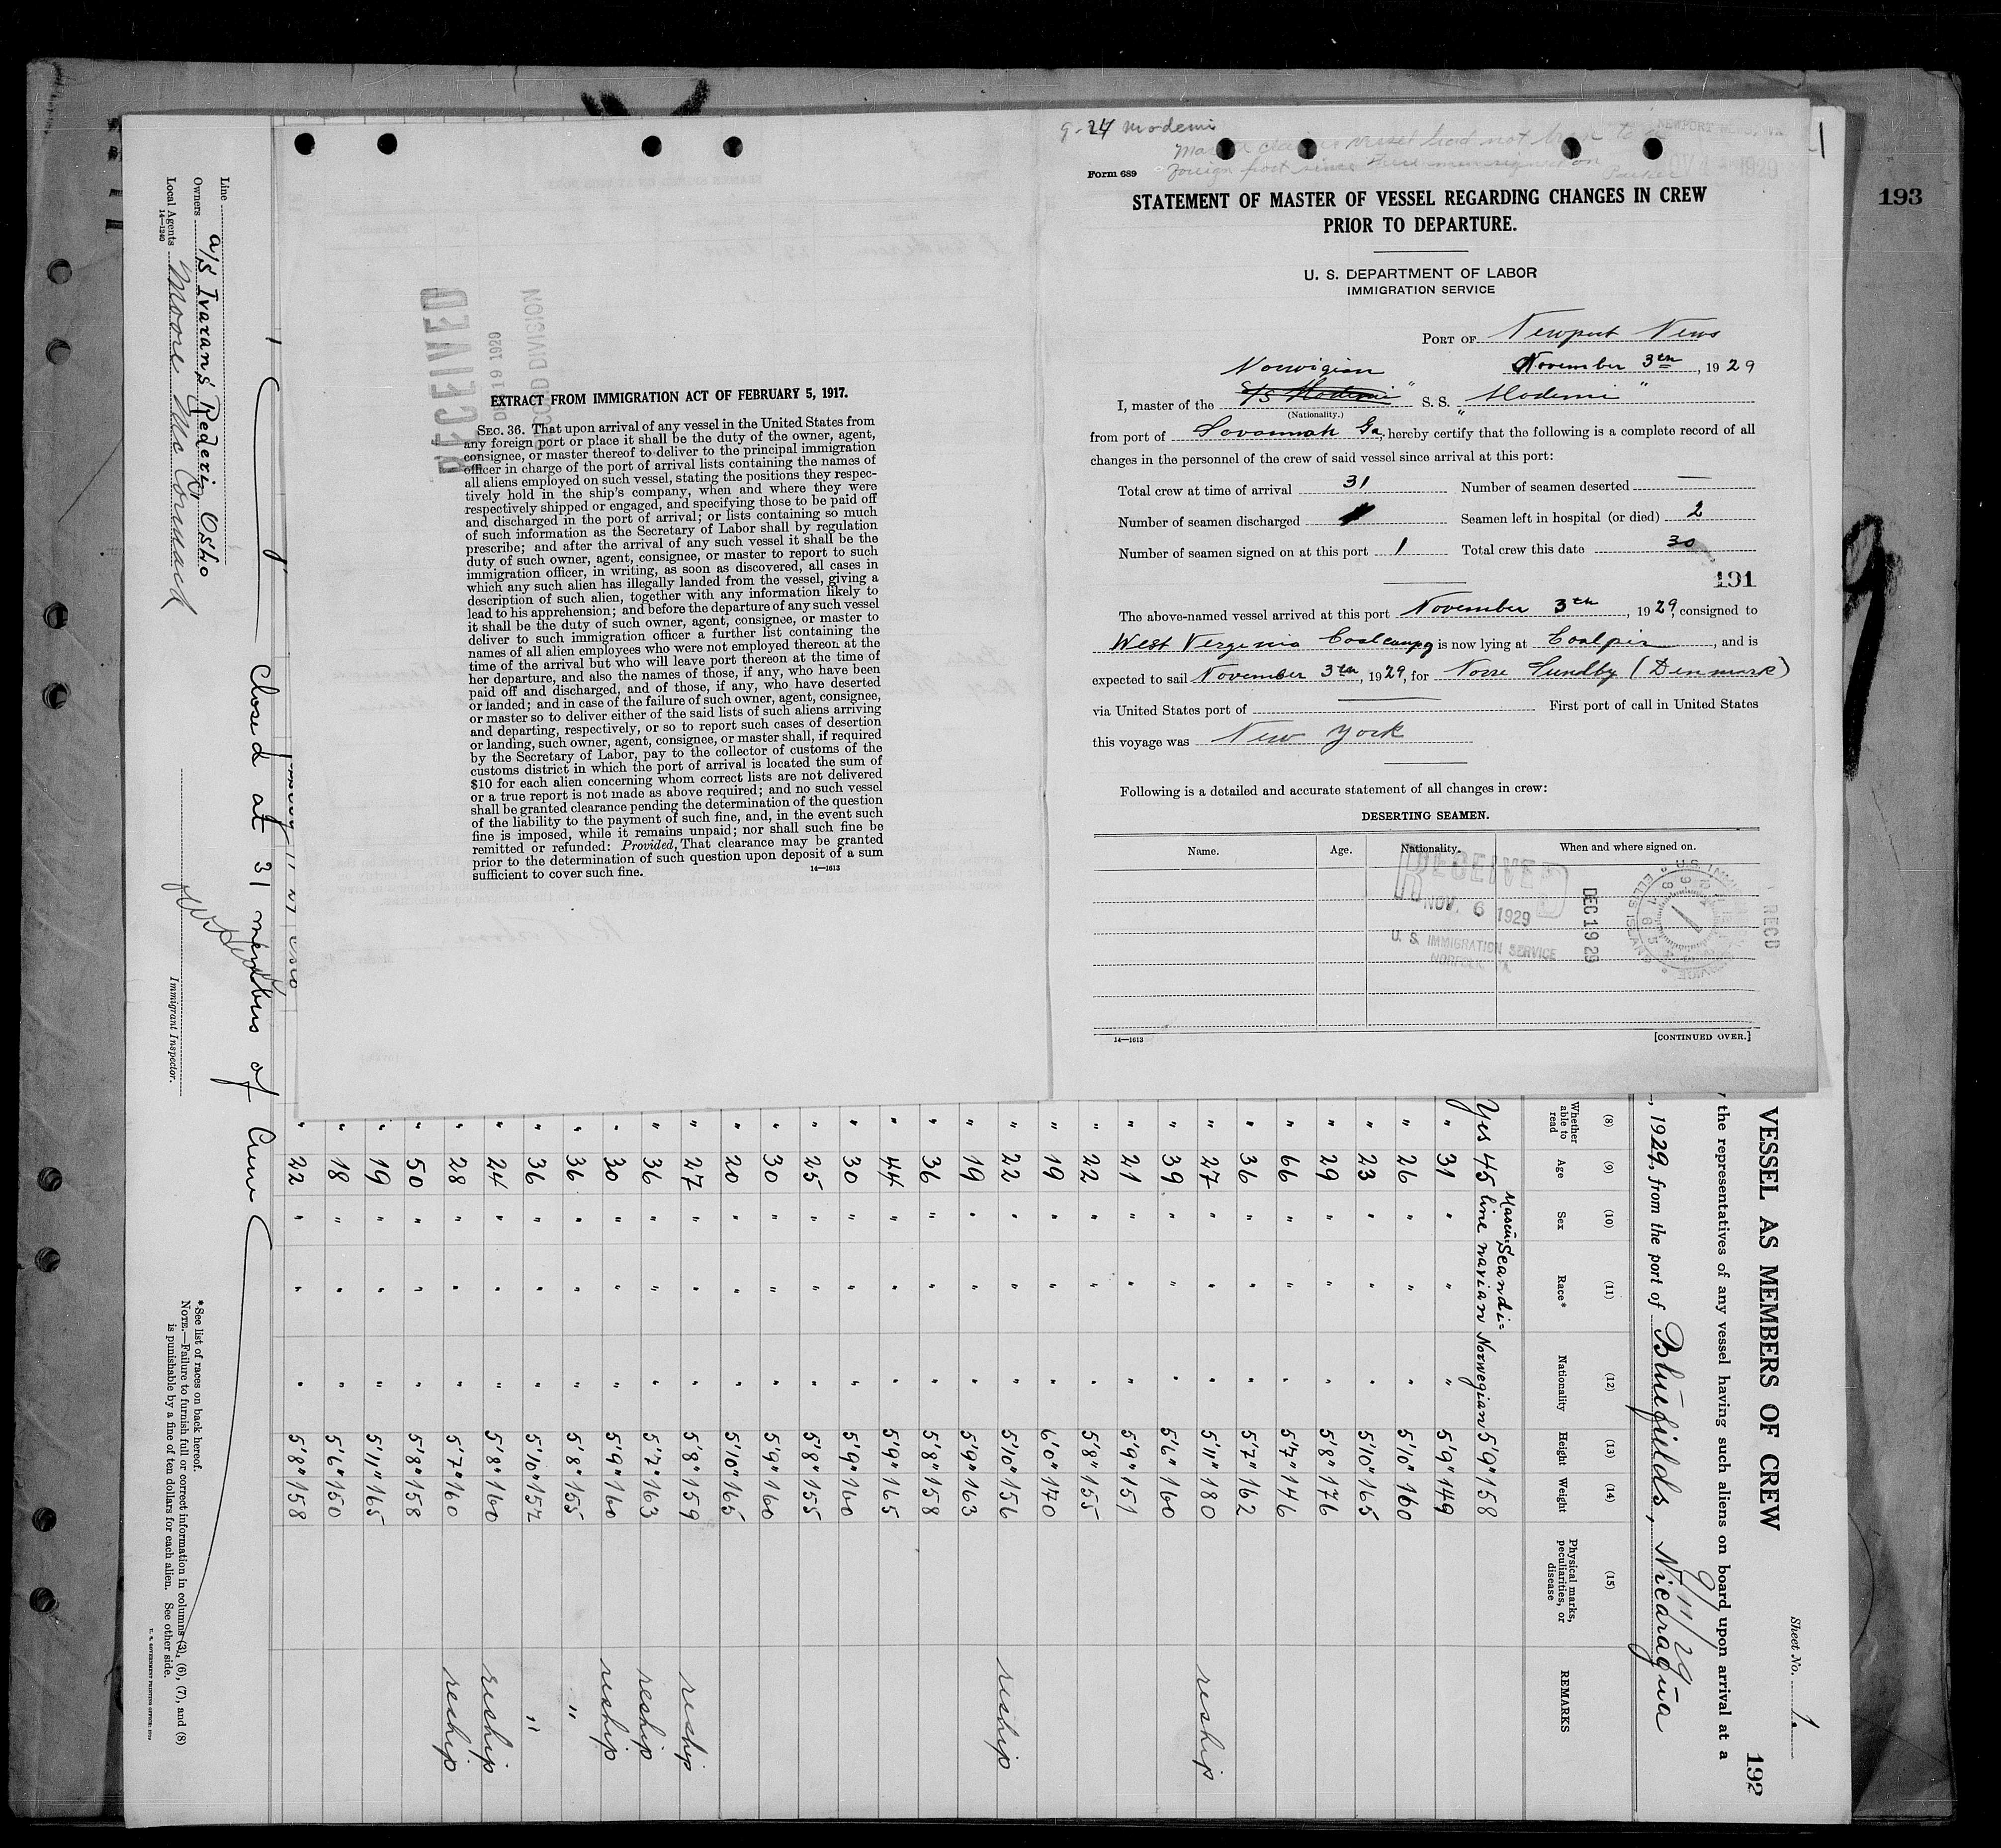 193
g-24 Modemi
Form 689
STATEMENT OF MASTER OF VESSEL REGARDING CHANGES IN CREW
PRIOR TO DEPARTURE.
U. S. DEPARTMENT OF LABOR
IMMIGRATION SERVICE
PORT OF Newport News
November 3th, 1929
Norwigian
I, master of the S/S Modemi S. S. "Modemi"
(Nationality.)
from port of Savannah Ga, hereby certify that the following is a complete record of all
changes in the personnel of the crew of said vessel since arrival at this port:
Total crew at time of arrival 31 Number of seamen deserted —
Number of seamen discharged Seamen left in hospital (or died) 2
Number of seamen signed on at this port 1 Total crew this date 30
191
The above-named vessel arrived at this port November 3th, 1929, consigned to
West Verginia Coalcompg is now lying at Coalpir, and is
expected to sail November 3th, 1929, for Norre Sundby (Denmark)
via United States port of First port of call in United States
this voyage was New York
Following is a detailed and accurate statement of all changes in crew:
DESERTING SEAMEN.
Name. Age. Nationality. When and where signed on.
RECEIVED
NOV. 6 1929
U. S. IMMIGRATION SERVICE
NORFOLK, VA.
DEC 19 29
RECD
14—1613
[CONTINUED OVER.]
RECEIVED
DEC 19 1929
RECORD DIVISION
EXTRACT FROM IMMIGRATION ACT OF FEBRUARY 5, 1917.
SEC. 36. That upon arrival of any vessel in the United States from
any foreign port or place it shall be the duty of the owner, agent,
consignee, or master thereof to deliver to the principal immigration
officer in charge of the port of arrival lists containing the names of
all aliens employed on such vessel, stating the positions they respec-
tively hold in the ship's company, when and where they were
respectively shipped or engaged, and specifying those to be paid off
and discharged in the port of arrival; or lists containing so much
of such information as the Secretary of Labor shall by regulation
prescribe; and after the arrival of any such vessel it shall be the
duty of such owner, agent, consignee, or master to report to such
immigration officer, in writing, as soon as discovered, all cases in
which any such alien has illegally landed from the vessel, giving a
description of such alien, together with any information likely to
lead to his apprehension; and before the departure of any such vessel
it shall be the duty of such owner, agent, consignee, or master to
deliver to such immigration officer a further list containing the
names of all alien employees who were not employed thereon at the
time of the arrival but who will leave port thereon at the time of
her departure, and also the names of those, if any, who have been
paid off and discharged, and of those, if any, who have deserted
or landed; and in case of the failure of such owner, agent, consignee,
or master so to deliver either of the said lists of such aliens arriving
and departing, respectively, or so to report such cases of desertion
or landing, such owner, agent, consignee, or master shall, if required
by the Secretary of Labor, pay to the collector of customs of the
customs district in which the port of arrival is located the sum of
$10 for each alien concerning whom correct lists are not delivered
or a true report is not made as above required; and no such vessel
shall be granted clearance pending the determination of the question
of the liability to the payment of such fine, and, in the event such
fine is imposed, while it remains unpaid; nor shall such fine be
remitted or refunded: Provided, That clearance may be granted
prior to the determination of such question upon deposit of a sum
sufficient to cover such fine.
14—1613
Sheet No. 1.
192
VESSEL AS MEMBERS OF CREW
the representatives of any vessel having such aliens on board upon arrival at a
9/11/29
, 1929, from the port of Bluefields, Nicaragua
(8) (9) (10) (11) (12) (13) (14) (15)
Whether able to read Age Sex Race* Nationality Height Weight Physical marks, peculiarities, or disease REMARKS
Yes 45 Mascu:line Scandi=navian Norwegian 5'9" 158
" 31 " " " 5'9" 149
" 26 " " " 5'10" 160
" 23 " " " 5'10" 165
" 29 " " " 5'8" 176
" 66 " " " 5'7" 146
" 36 " " " 5'7" 162
" 27 " " " 5'11" 180 reship
" 39 " " " 5'6" 160
" 21 " " " 5'9" 151
" 22 " " " 5'8" 155
" 19 " " " 6'0" 170
" 22 " " " 5'10" 156 reship
" 19 " " " 5'9" 163
" 36 " " " 5'8" 158
" 44 " " " 5'9" 165
" 30 " " " 5'9" 160
" 25 " " " 5'8" 155
" 30 " " " 5'9" 160
" 20 " " " 5'10" 165
" 27 " " " 5'8" 159 reship
" 36 " " " 5'7" 163 reship
" 30 " " " 5'9" 160 reship
" 36 " " " 5'8" 155 "
" 36 " " " 5'10" 152 "
" 24 " " " 5'8" 160 reship
" 28 " " " 5'7" 160 reship
" 50 " " " 5'8" 158
" 19 " " " 5'11" 165
" 18 " " " 5'6" 150
" 22 " " " 5'8" 158
Closed at 31 members of Crew
Line
Owners A/S Ivarans Rederi, Oslo
Local Agents Moore Mc Cormack
14—1240
Immigrant Inspector.
*See list of races on back hereof.
NOTE.—Failure to furnish full or correct information in columns (3), (6), (7), and (8)
is punishable by a fine of ten dollars for each alien. See other side.
U. S. GOVERNMENT PRINTING OFFICE